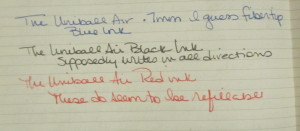 The Uniball Air .7mm I guess fibertip
Blue Ink
The Uniball Air Black Ink
Supposedly writes in all directions
The Uniball Air Red ink
These do seem to be